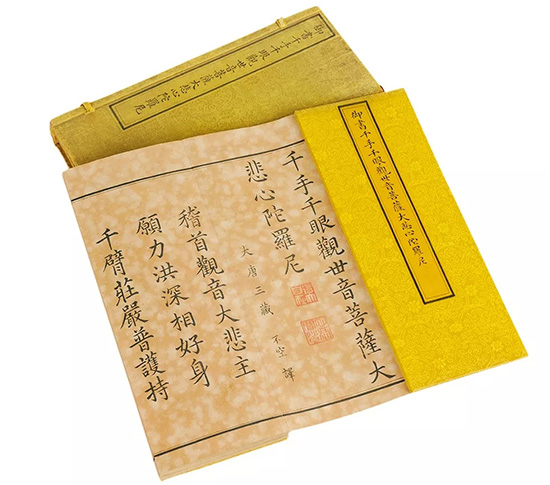 御書千手千眼觀世音菩薩大悲心陀羅尼
御書千手千眼觀世音菩薩大悲心陀羅尼
千手千眼觀世音菩薩大
悲心陀羅尼
大唐三藏 不空 譯
稽首觀音大悲主
願力洪深相好身
千臂莊嚴普護持